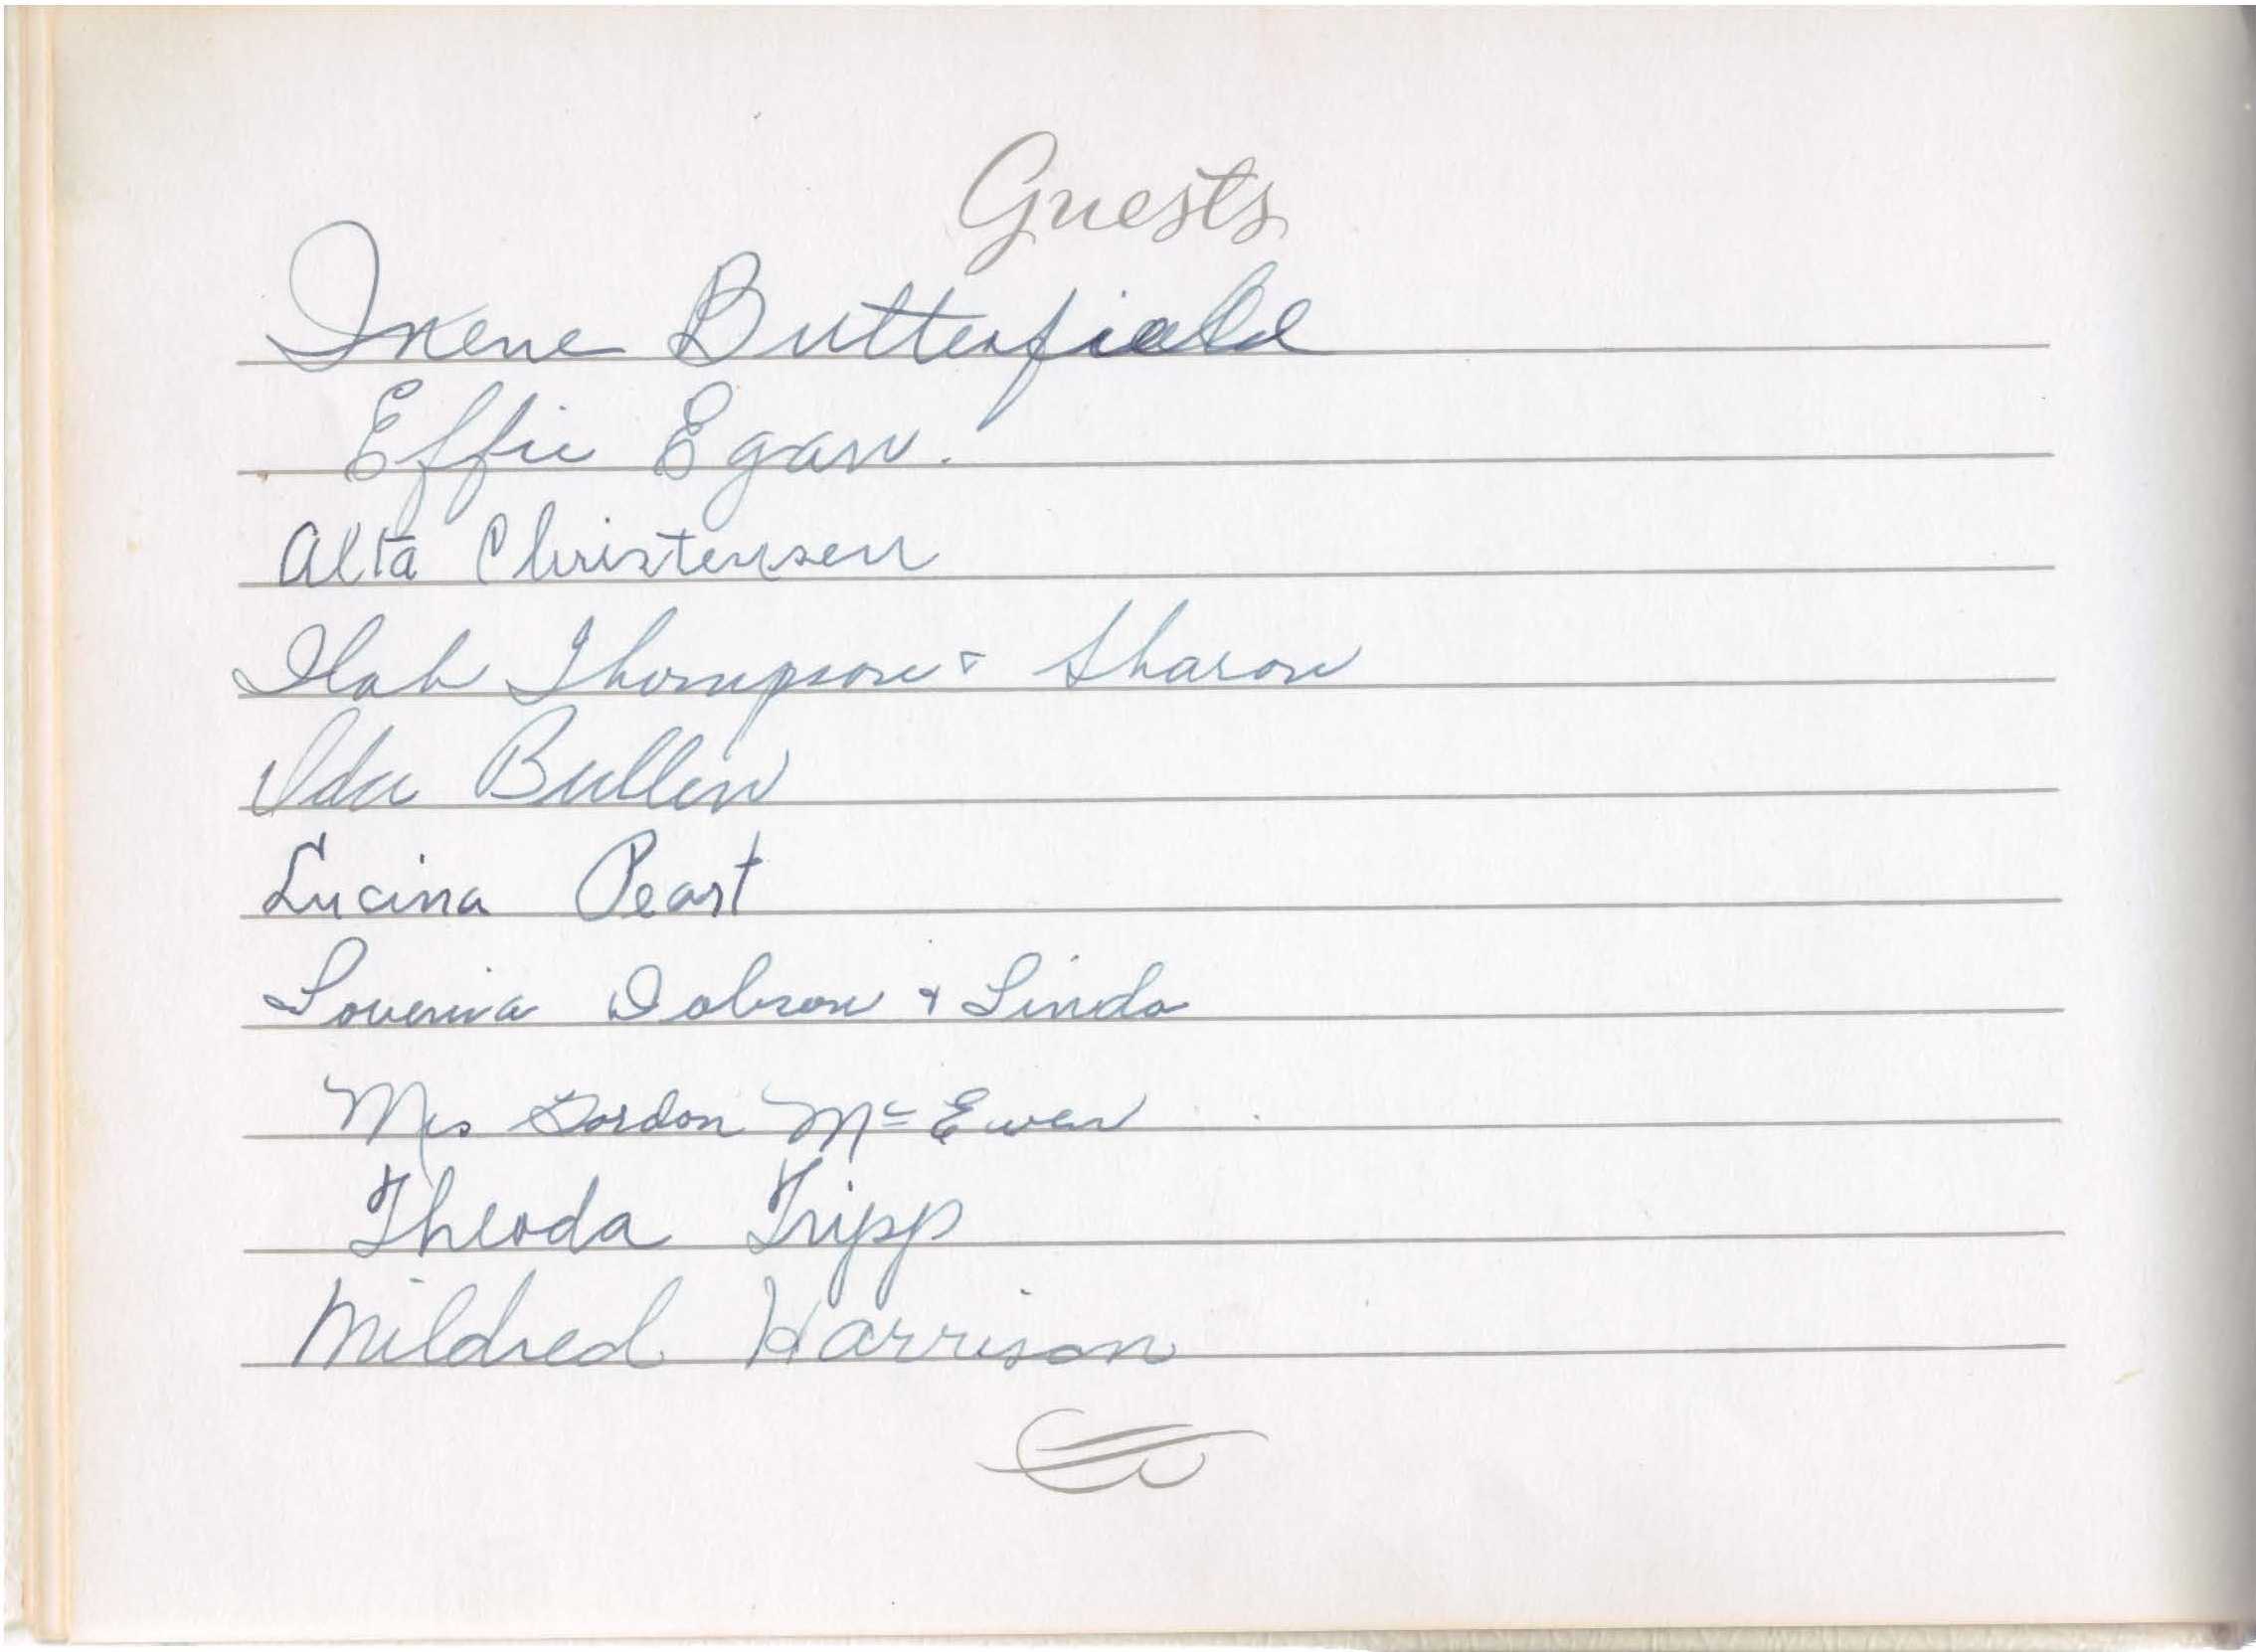 Guests
Irene Butterfield
Effie Egan.
Alta Christensen
Ilah Thompson & Sharon
Ida Bullen
Lucina Peart
Dobson & Linda
Mrs Gordon Mc Ewen
Theoda Tripp
Mildred Harrison